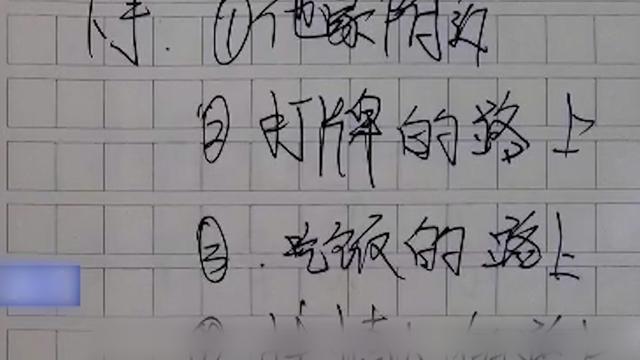 ①他家附近
②打牌的路上
③.吃饭的路上